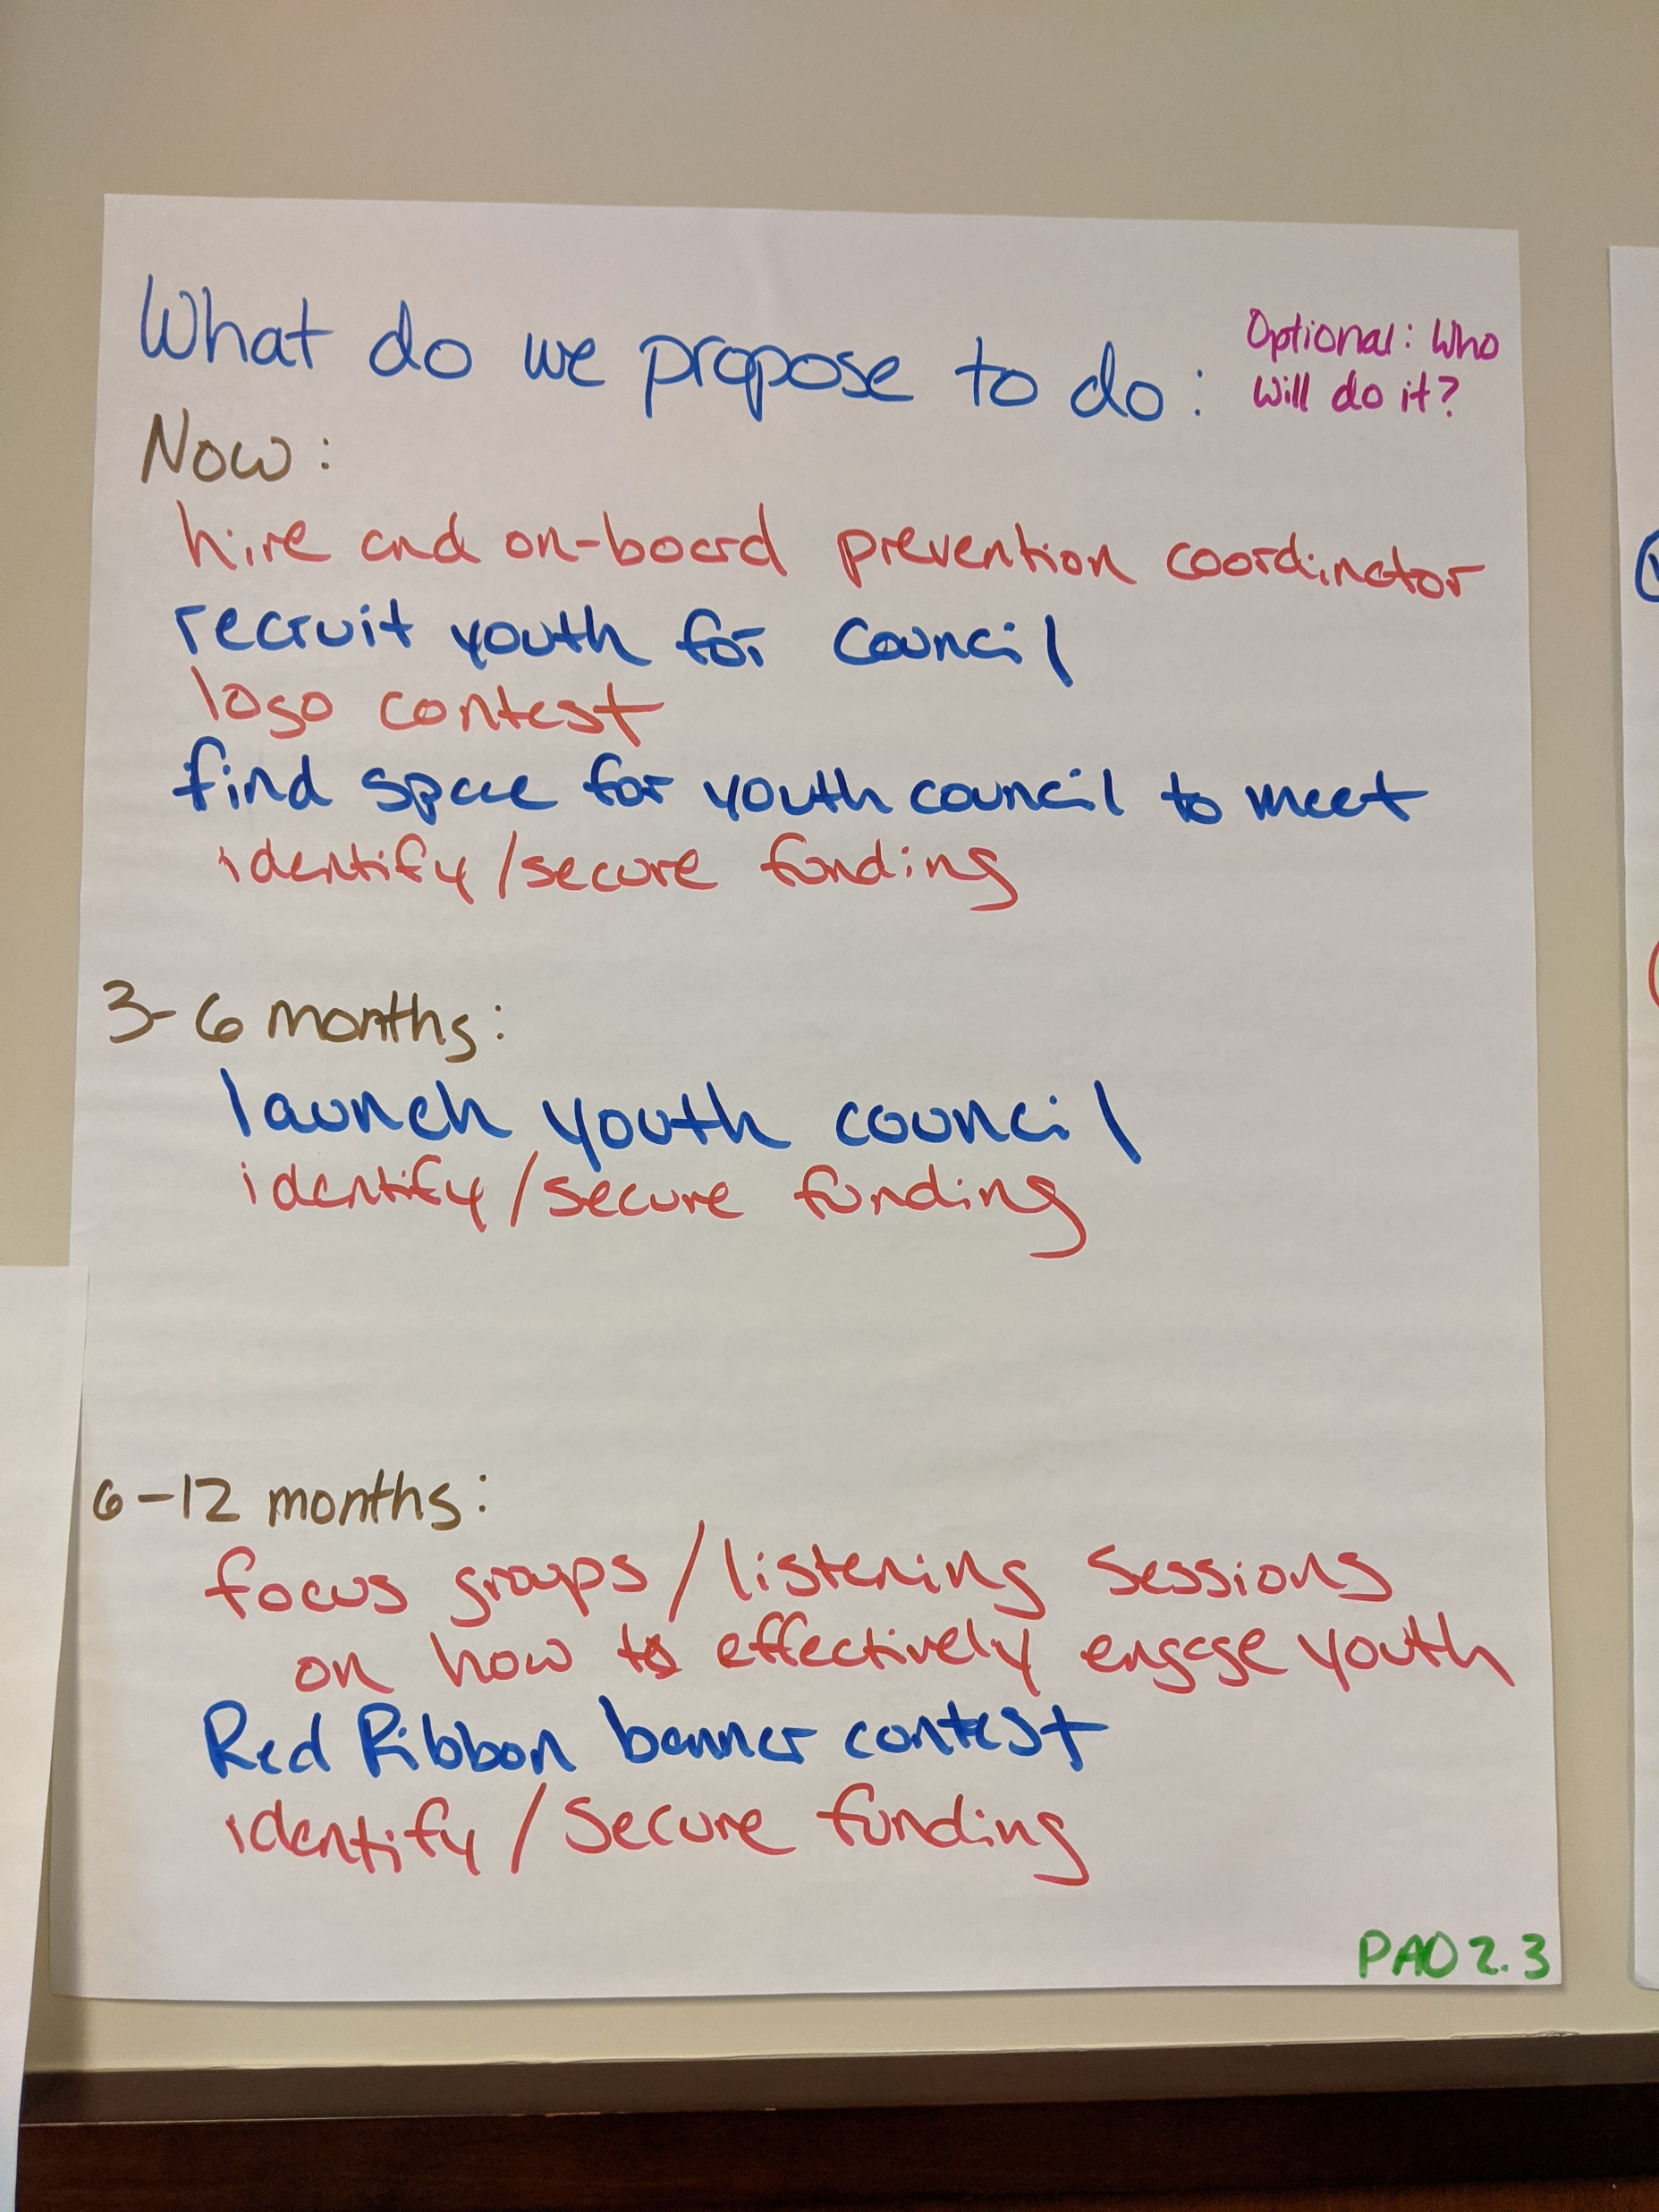 What do we propose to do:
Optional: Who
will do it?
Now:
hire and on-board prevention coordinator
recruit youth for council
logo contest
find space for youth council to meet
identify/secure funding
3-6 months:
launch youth council
identify/secure funding
6-12 months:
focus groups/listening sessions
on how to effectively engage youth
Red Ribbon banner contest
identify/secure funding
PAO 2.3